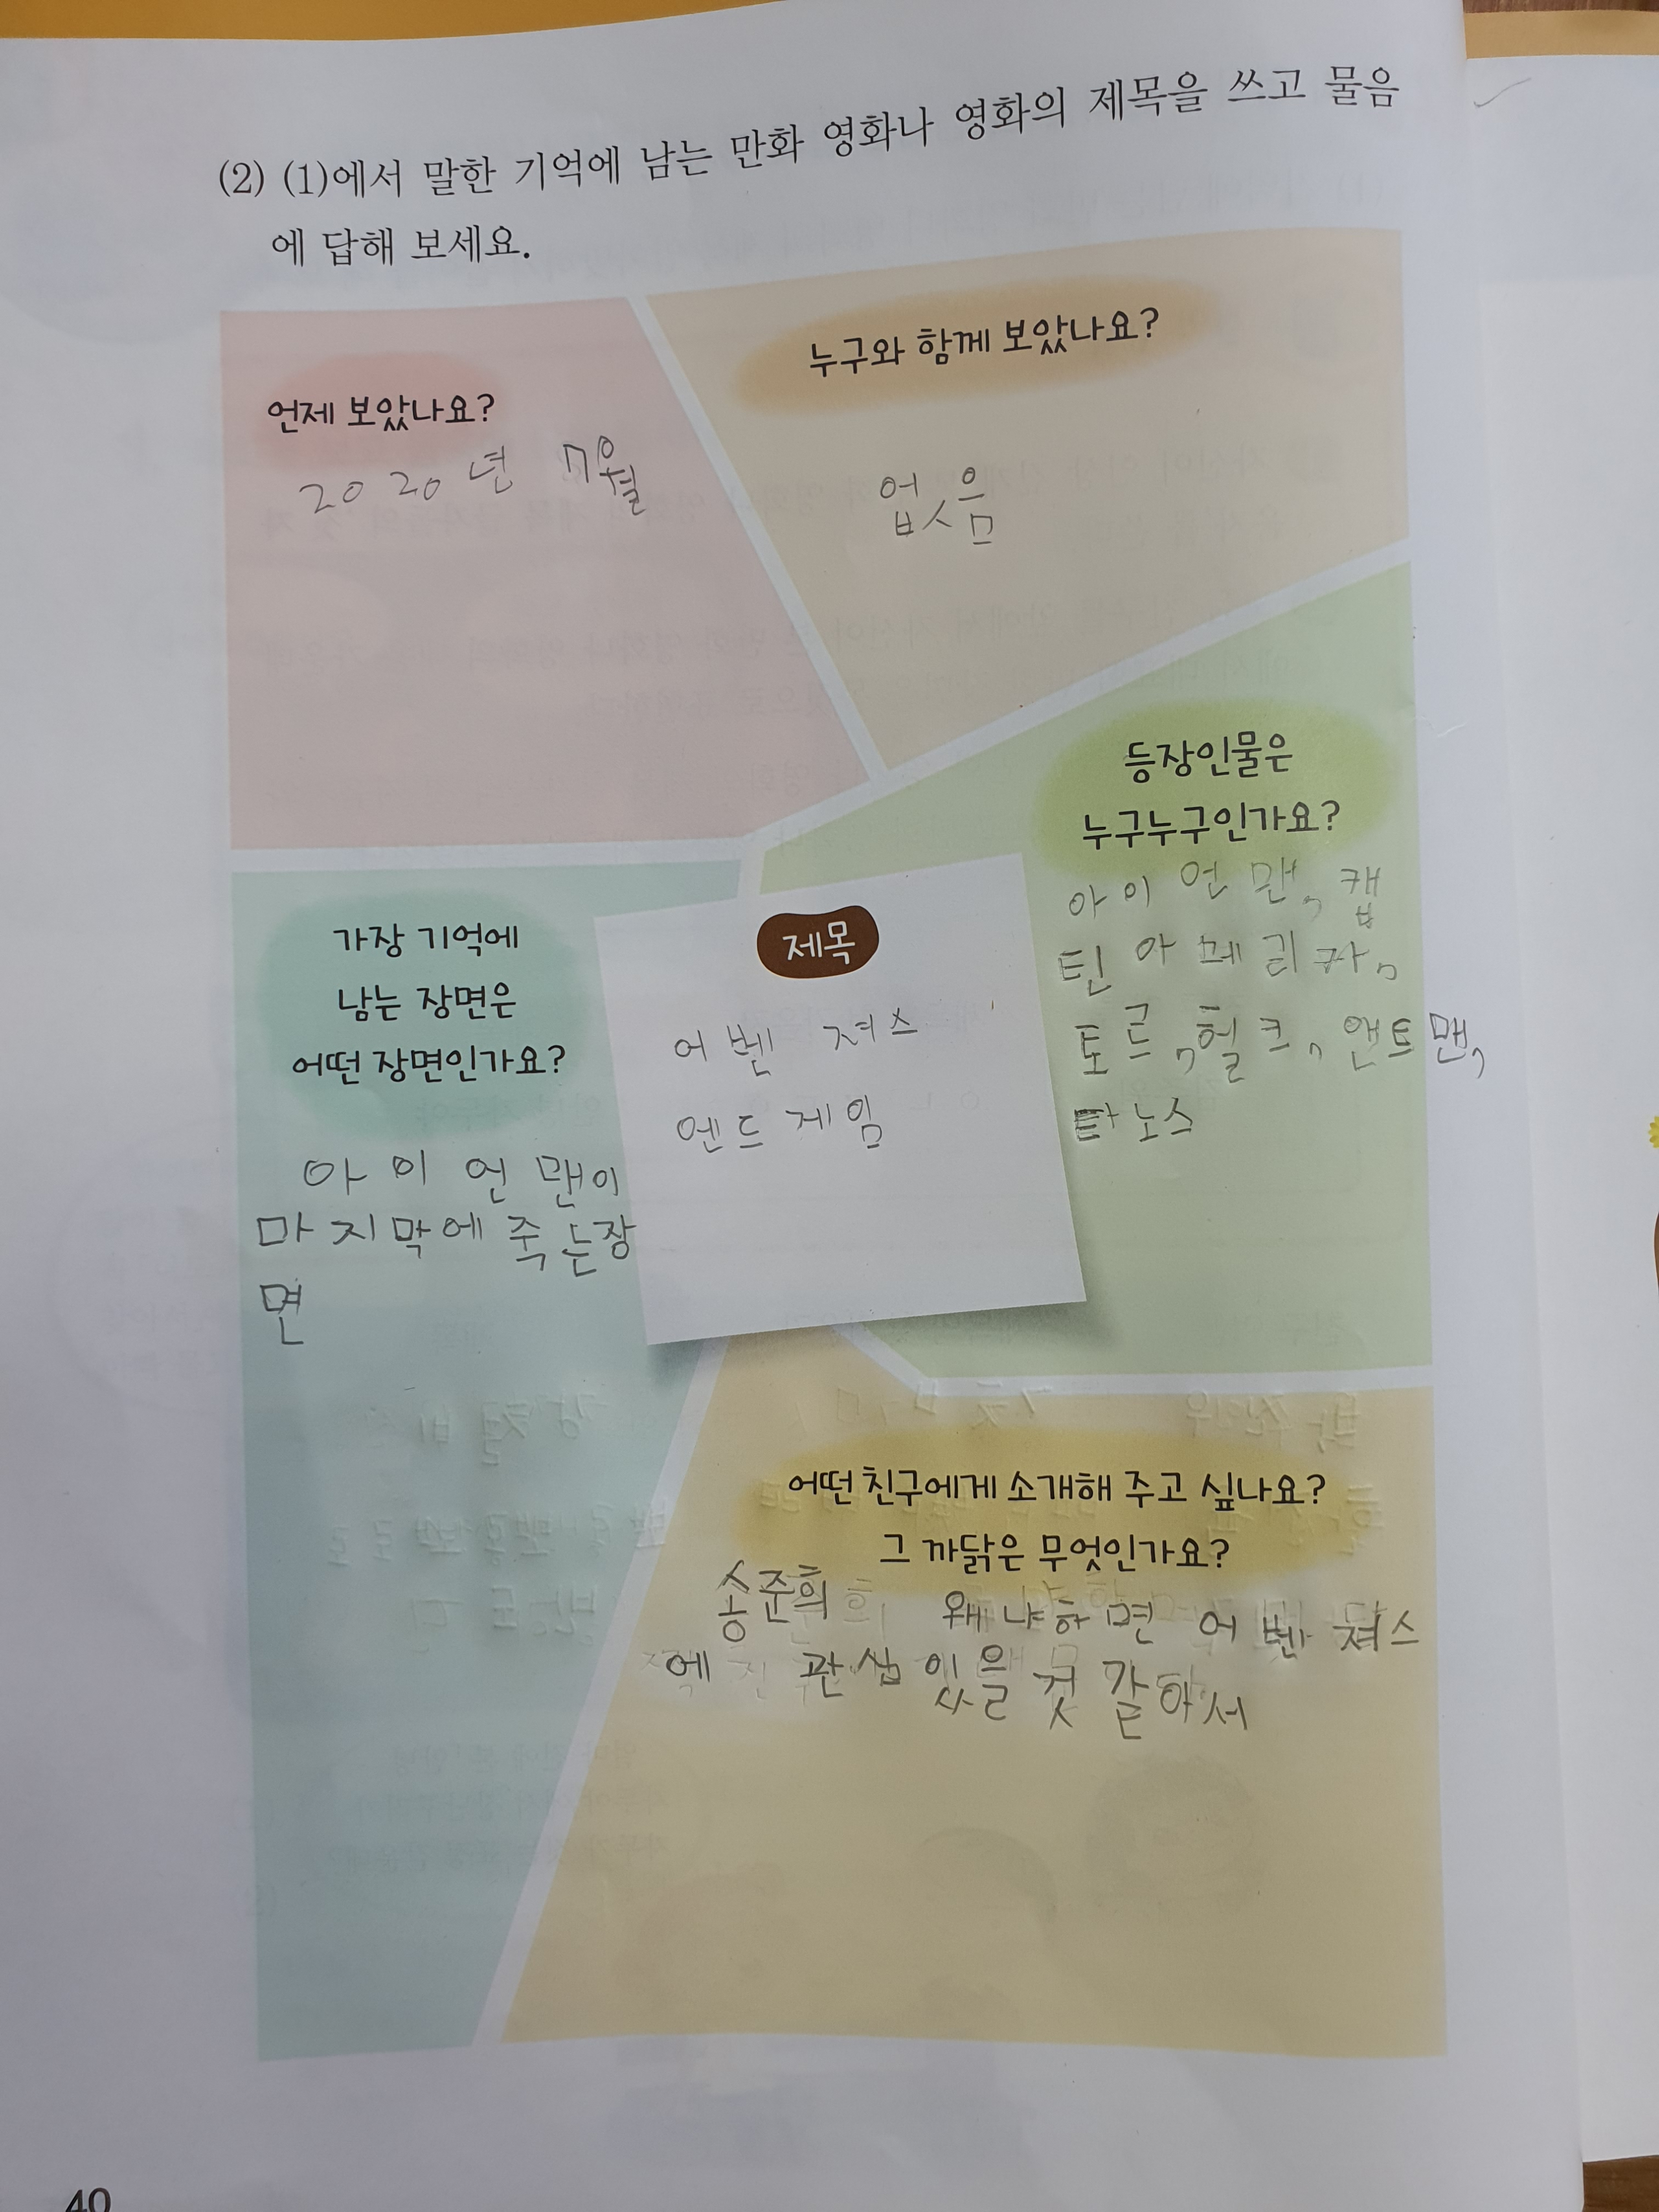 (2) (1)에서 말한 기억에 남는 만화 영화나 영화의 제목을 쓰고 물음
에 답해 보세요.
언제 보았나요?
2020년 7월
누구와 함께 보았나요?
없음
등장인물은
누구누구인가요?
아이언맨, 캡
틴아메리카,
토르, 헐크, 앤트맨,
타노스
제목
어벤져스
엔드게임
가장 기억에
남는 장면은
어떤 장면인가요?
아이언맨이
마지막에 죽는장
면
어떤 친구에게 소개해 주고 싶나요?
그 까닭은 무엇인가요?
송준희 왜냐하면 어벤져스
에 관심 있을 것 같아서
40